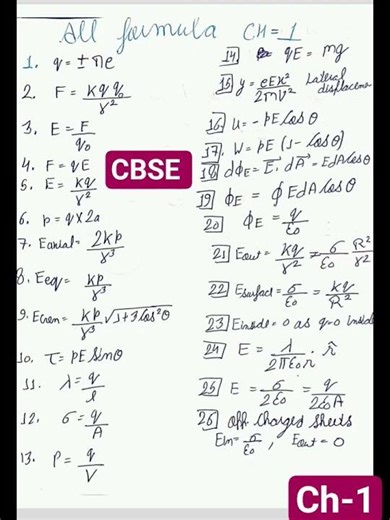 All formula CH = 1
1. q = ± ne
2. F = Kq q₀ / r²
3. E = F / q₀
4. F = qE
CBSE
5. E = Kq / r²
6. p = q × 2a
7. Eaxial = 2Kp / r³
8. Eeq = Kp / r³
9. Egen = Kp / r³ √1+3cos²θ
10. τ = pE sinθ
11. λ = q / l
12. σ = q / A
13. ρ = q / V
14 qE = mg
15 y = eEx² / 2mV² Lateral displaceme
16 U = - pE cosθ
17. W = pE (1 - cosθ)
18 dϕE = E⃗. dA⃗ = EdA cosθ
19 ϕE = ∮ EdA cosθ
20 ϕE = q / ε₀
21 Eout = Kq / r² = σ / ε₀ R² / r²
22 Esurfact = σ / ε₀ = Kq / R²
23 Einside = 0 as q=0 inside
24 E = λ / 2πε₀r . r̂
25 E = σ / 2ε₀ = q / 2ε₀A
26 opp charged sheets
Ein = σ / ε₀ , Eout = 0
Ch-1